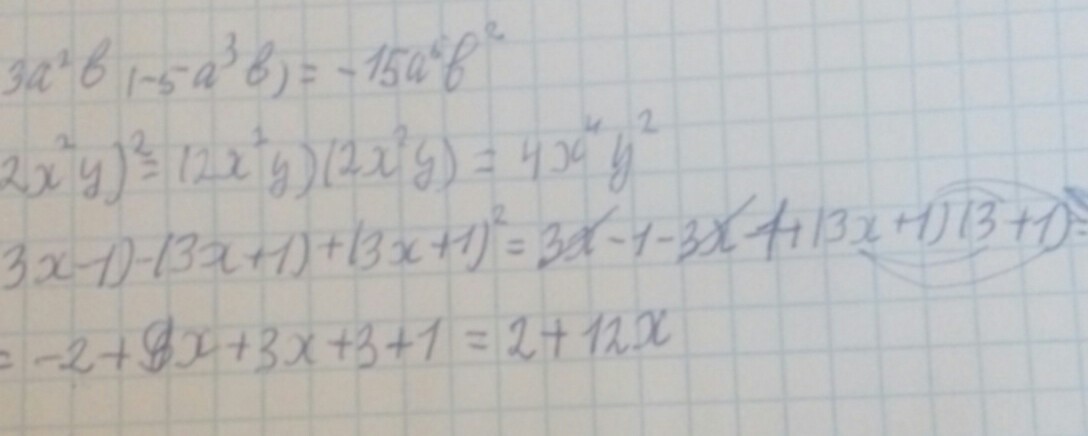 3a²b(-5a³b)=-15a⁶b²
2x²y)²=(2x²y)(2x²y)=4x⁴y²
3x-1)-(3x+1)+(3x+1)²=3x-1-3x-1+(3x+1)(3+1)=
=-2+9x+3x+3+1=2+12x